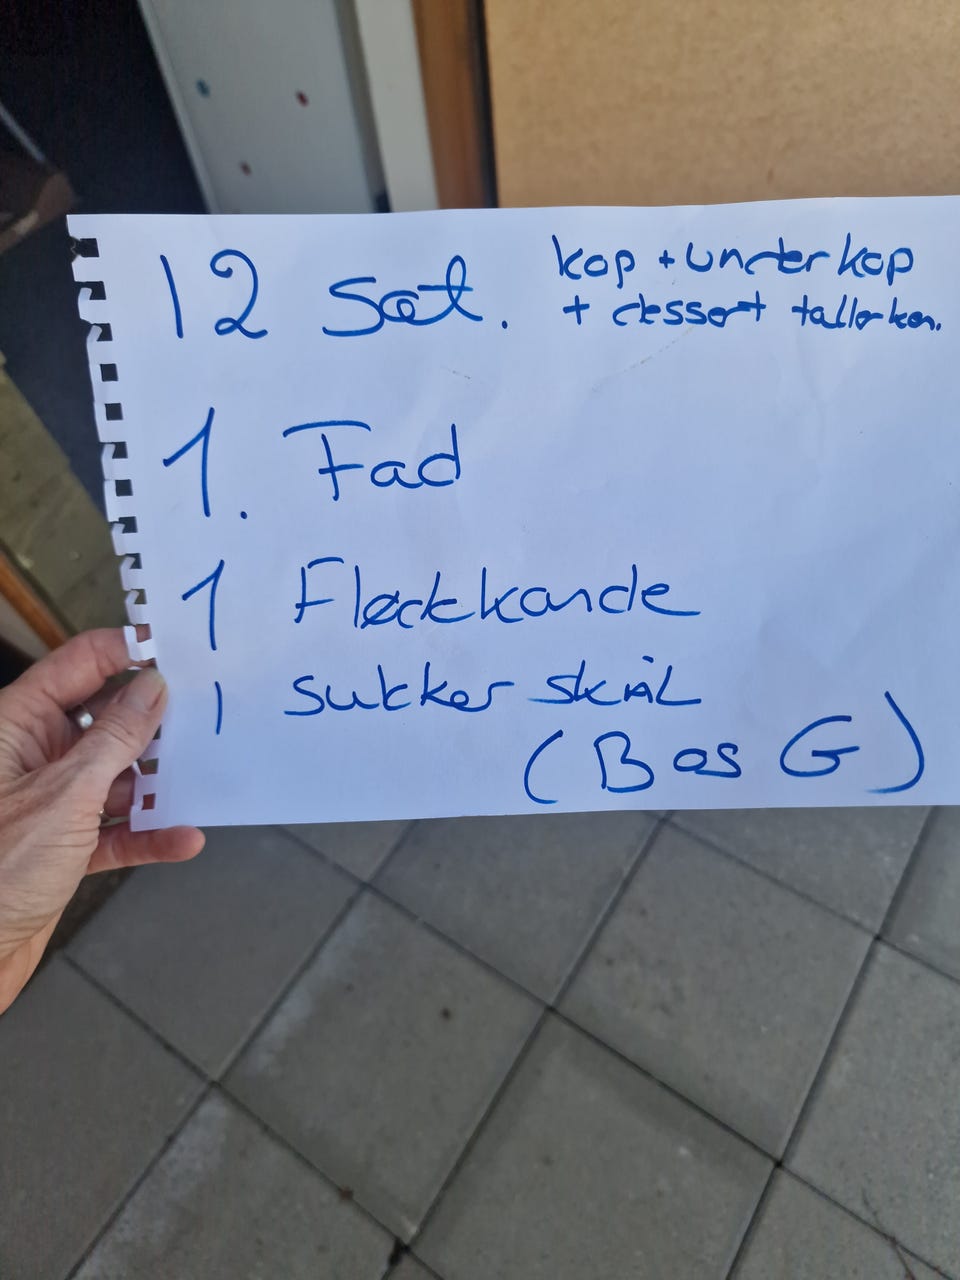 12 sæt. kop + underkop
+ dessert tallerken.
1. Fad
1 Flødekande
1 sukker skål
(B os G)